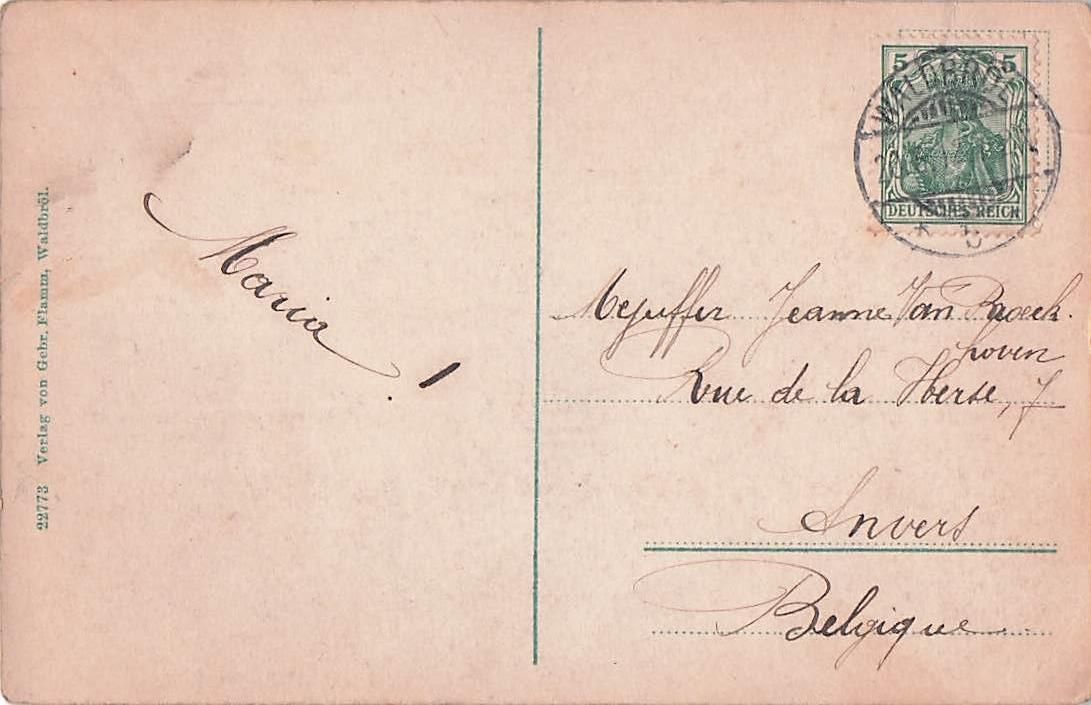 22773 Verlag von Gebr. Flamm, Waldbröl.
Maria!
5 5
DEUTSCHES REICH
WALDBRÖL
Mejuffer Jeanne Van Broeck-
hoven
Rue de la Herse, 7
Anvers
Belgique